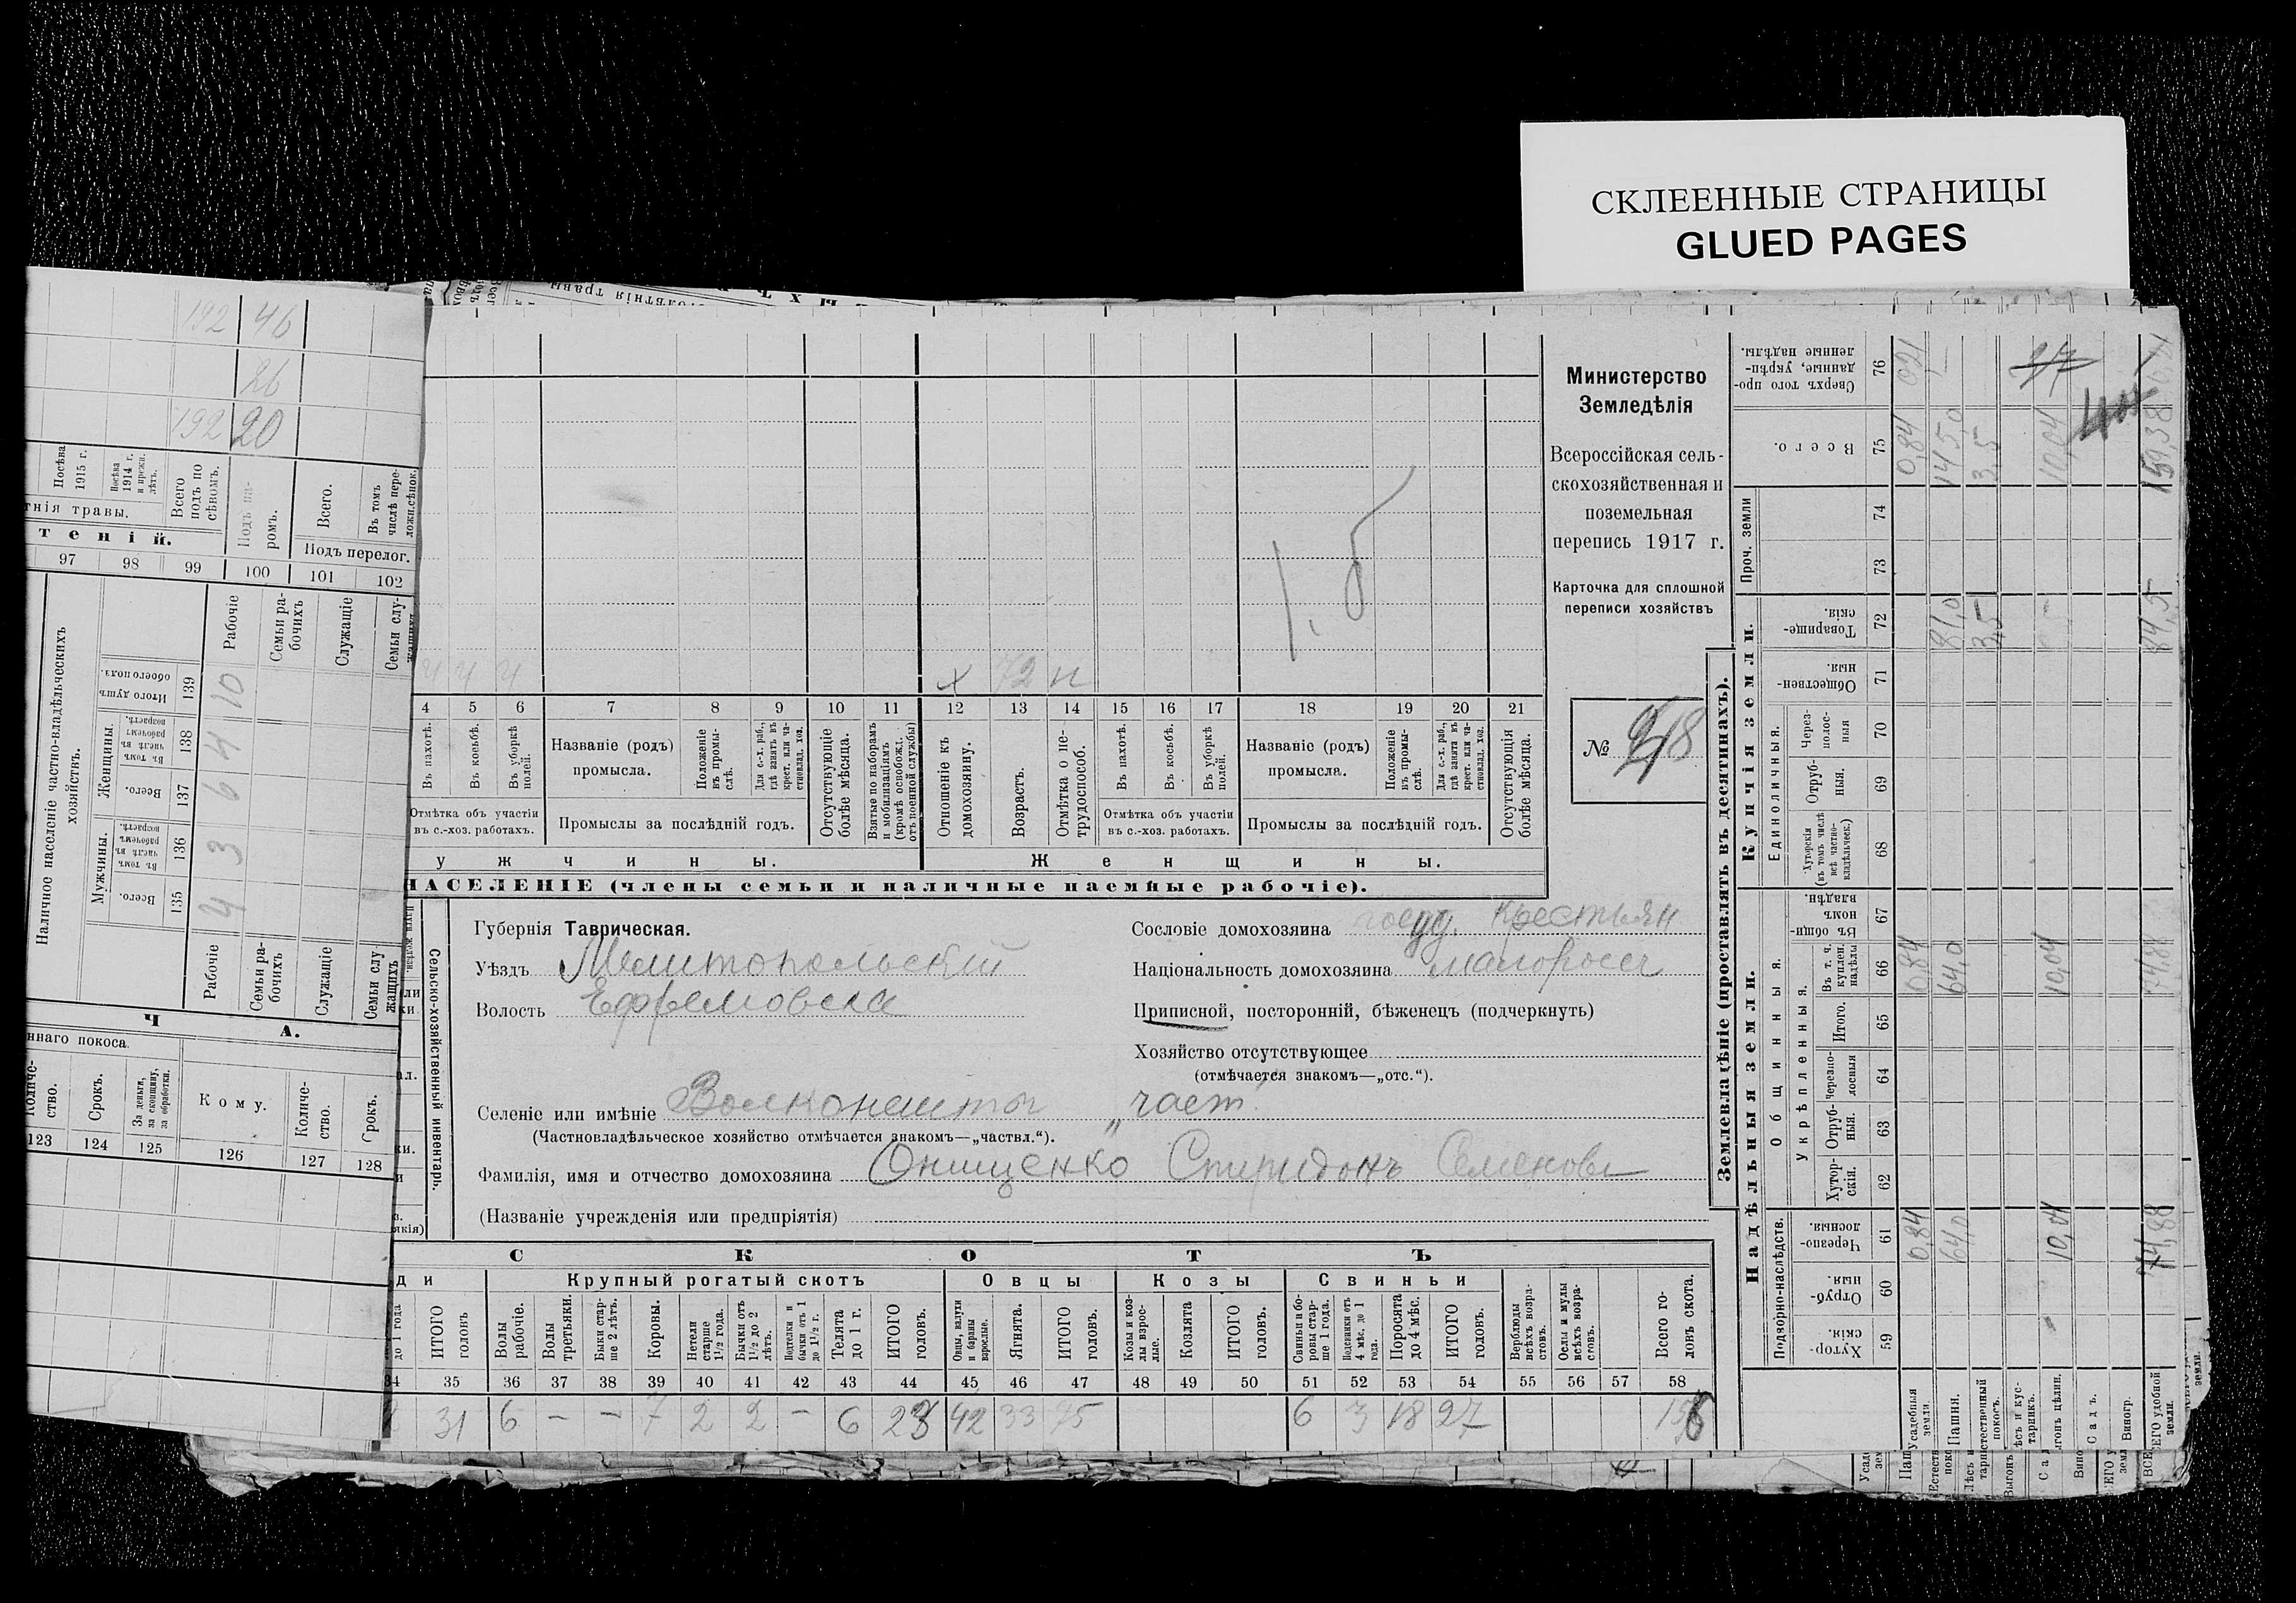 СКЛЕЕННЫЕ СТРАНИЦЫ
GLUED PAGES
192 46
26
192 20
Посѣва 1915 г.
Посѣва 1914 г. и прежн. лѣтъ.
Всего подъ посѣвомъ.
Подъ паромъ.
Всего.
Въ томъ числѣ перелож. сѣнок.
тнія травы.
Подъ перелог.
теній.
97 98 99 100 101 102
Наличное населеніе частно-владѣльческихъ хозяйствъ.
Мужчины. Женщины.
Всего. 135
Въ томъ числѣ въ рабочемъ возрастѣ. 136
Всего. 137
Въ томъ числѣ въ рабочемъ возрастѣ. 138
Итого душъ обоего пола. 139
Рабочіе 4 3 6 4 10 Рабочіе
Семьи рабочихъ Семьи рабочихъ
Служащіе Служащіе
Семьи служащихъ Семьи служащихъ
Ч А.
ннаго покоса.
Количество.
Срокъ.
За деньги, за скопщину, за обработки.
Кому.
Количество.
Срокъ.
123 124 125 126 127 128
1. 8
4 4 4 х 72 н
4 5 6 7 8 9 10 11 12 13 14 15 16 17 18 19 20 21
Въ пахотѣ.
Въ косьбѣ.
Въ уборкѣ полей.
Названіе (родъ) промысла.
Положеніе въ промыслѣ.
Для с.-х. раб., гдѣ занятъ въ крест. или частновлад. хоз.
Отсутствующіе болѣе мѣсяца.
Взятые по наборамъ и мобилизаціямъ (кромѣ освобожд. отъ военной службы)
Отношеніе къ домохозяину.
Возрастъ.
Отмѣтка о нетрудоспособ.
Въ пахотѣ.
Въ косьбѣ.
Въ уборкѣ полей.
Названіе (родъ) промысла.
Положеніе въ промыслѣ.
Для с.-х. раб., гдѣ занята въ крест. или частновлад. хоз.
Отсутствующія болѣе мѣсяца.
Отмѣтка объ участіи въ с.-хоз. работахъ.
Промыслы за послѣдній годъ.
Отмѣтка объ участіи въ с.-хоз. работахъ.
Промыслы за послѣдній годъ.
ужчины. Женщины.
НАСЕЛЕНІЕ (члены семьи и наличные наемные рабочіе).
Министерство
Земледѣлія
Всероссійская сель-
скохозяйственная и
поземельная
перепись 1917 г.
Карточка для сплошной
переписи хозяйствъ
№ 218
Сельско-хозяйственный инвентарь.
Губернія Таврическая.
Уѣздъ Мелитопольскій
Волость Ефремовска
Селеніе или имѣніе Волконешты " част.
(Частновладѣльческое хозяйство отмѣчается знакомъ—„частвл.“).
Фамилія, имя и отчество домохозяина Онищенко Спиридонъ Семенови
(Названіе учрежденія или предпріятія)
Сословіе домохозяина крестьян
Національность домохозяина малоросс
Приписной, посторонній, бѣженецъ (подчеркнуть)
Хозяйство отсутствующее
(отмѣчается знакомъ—„отс.“).
СКОТЪ
ди Крупный рогатый скотъ Овцы Козы Свиньи
до 1 года
ИТОГО головъ
Волы рабочіе.
Волы третьяки.
Быки старше 2 лѣтъ.
Коровы.
Нетели старше 1½ года.
Бычки отъ 1½ до 2 лѣтъ.
Подтелки и бычки отъ 1 до 1½ г.
Телята до 1 г.
ИТОГО головъ.
Овцы, валухи и бараны взрослые.
Ягнята.
ИТОГО головъ.
Козы и козлы взрослые.
Козлята
ИТОГО головъ.
Свиньи и боровы старше 1 года.
Подсвинки отъ 4 мѣс. до 1 года.
Поросята до 4 мѣс.
ИТОГО головъ.
Верблюды всѣхъ возрастовъ.
Ослы и мулы всѣхъ возрастовъ.
Всего головъ скота.
34 35 36 37 38 39 40 41 42 43 44 45 46 47 48 49 50 51 52 53 54 55 56 57 58
31 6 — — 7 2 2 — 6 23 42 33 75 6 3 18 27 156
Землевладѣніе (проставлять въ десятинахъ).
Надѣльныя земли. Купчія земли. Проч. земли
Подворно-наслѣдств.
Общинныя.
Укрѣпленныя.
Единоличныя.
Хуторскія. 59
Отрубныя. 60
Черезполосныя. 61
Хуторскія. 62
Отрубныя. 63
Черезполосныя 64
Итого. 65
Въ т. ч. куплен. надѣлы 66
Въ общинномъ владѣн. 67
Хуторскія (въ томъ числѣ всѣ частновладѣльческ.) 68
Отрубныя. 69
Черезполосныя 70
Общественныя. 71
Товарищескія. 72
73
74
Всего. 75
Сверхъ того проданные, укрѣпленные надѣлы. 76
Усадебныя земли. 0,84 0,84 0,84 021
Пашня. 64,0 64,0 81,0 145,0
Естественный покосъ. 3,5 3,5
Лѣсъ и кустарникъ.
Выгонъ цѣлин. 10,04 10,04 10,04
Садъ.
Виногр.
ВСЕГО удобной земли. 74,88 74,88 84,5 159,38